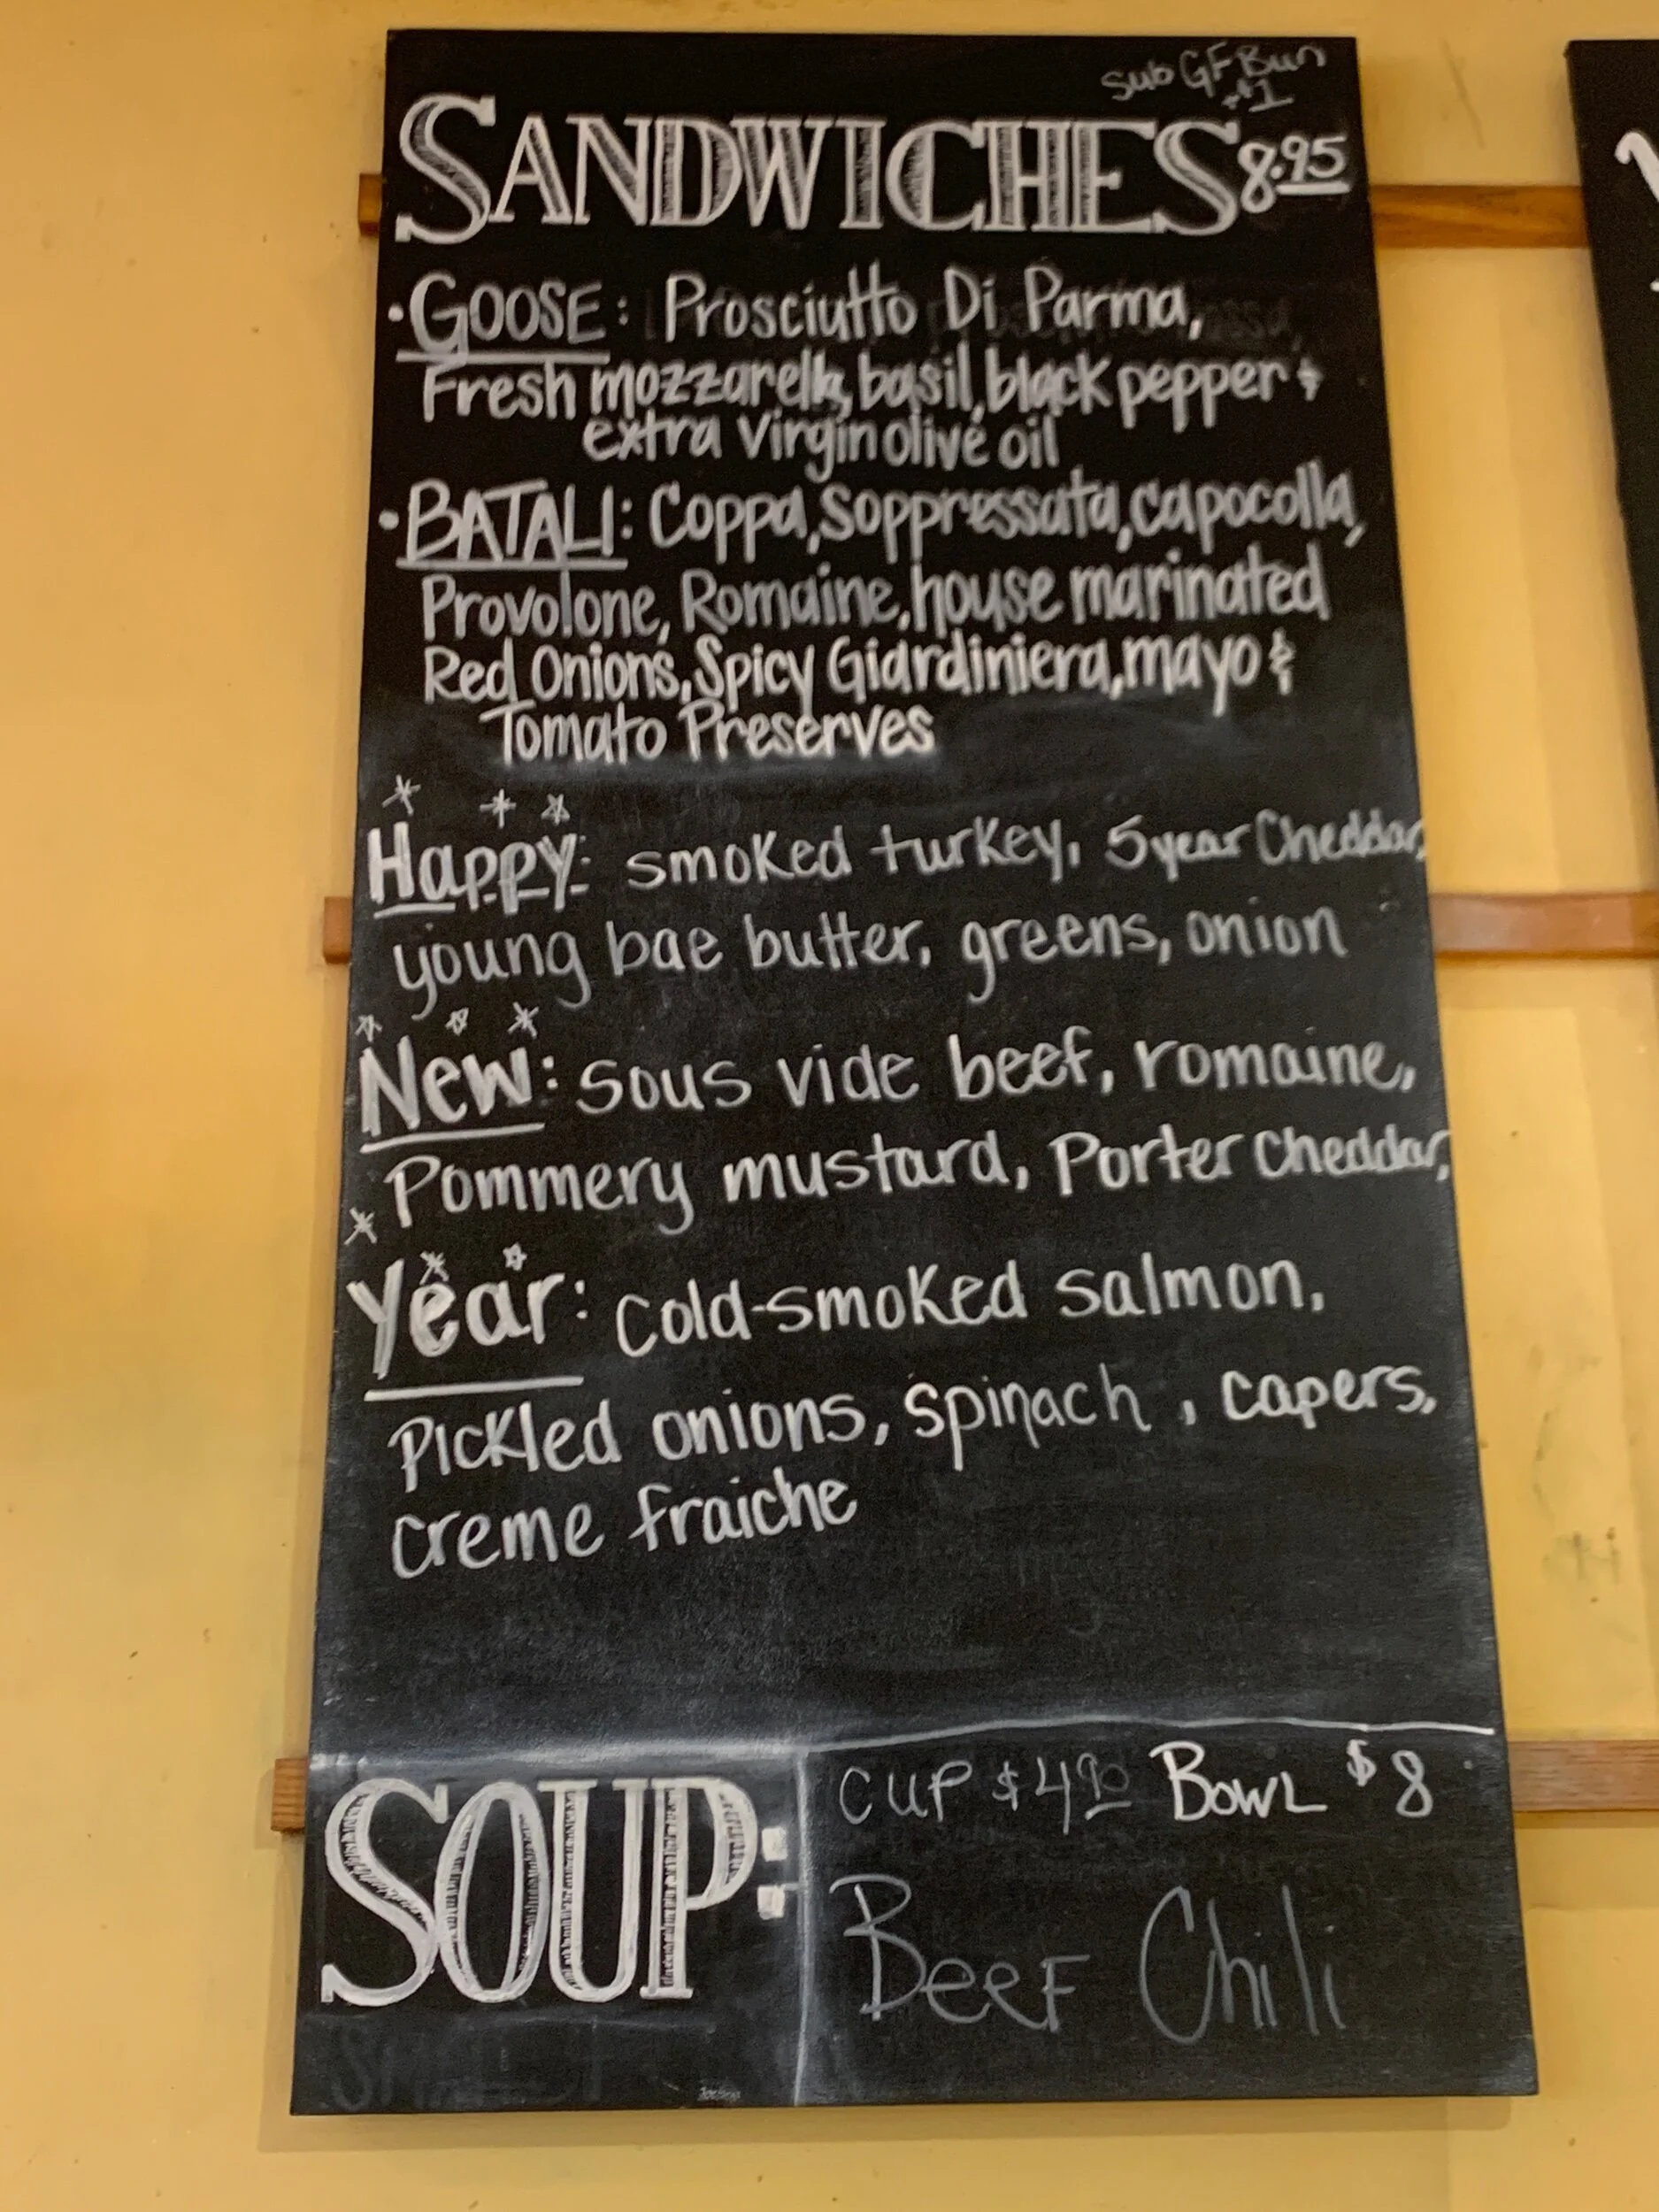 Sub GF Bun
+$1
SANDWICHES 8.95
• GOOSE: Prosciutto Di Parma,
Fresh mozzarella, basil, black pepper &
extra Virgin olive oil
• BATALI: Coppa, Soppressata, Capocolla,
Provolone, Romaine, house marinated
Red Onions, Spicy Giardiniera, mayo &
Tomato Preserves
Happy: smoked turkey, 5 year Cheddar,
young bae butter, greens, onion
New: Sous vide beef, romaine,
Pommery mustard, Porter cheddar,
Year: cold-smoked salmon,
Pickled onions, spinach, capers,
creme fraiche
SOUP:
CUP $4.90 BOWL $8
Beef Chili